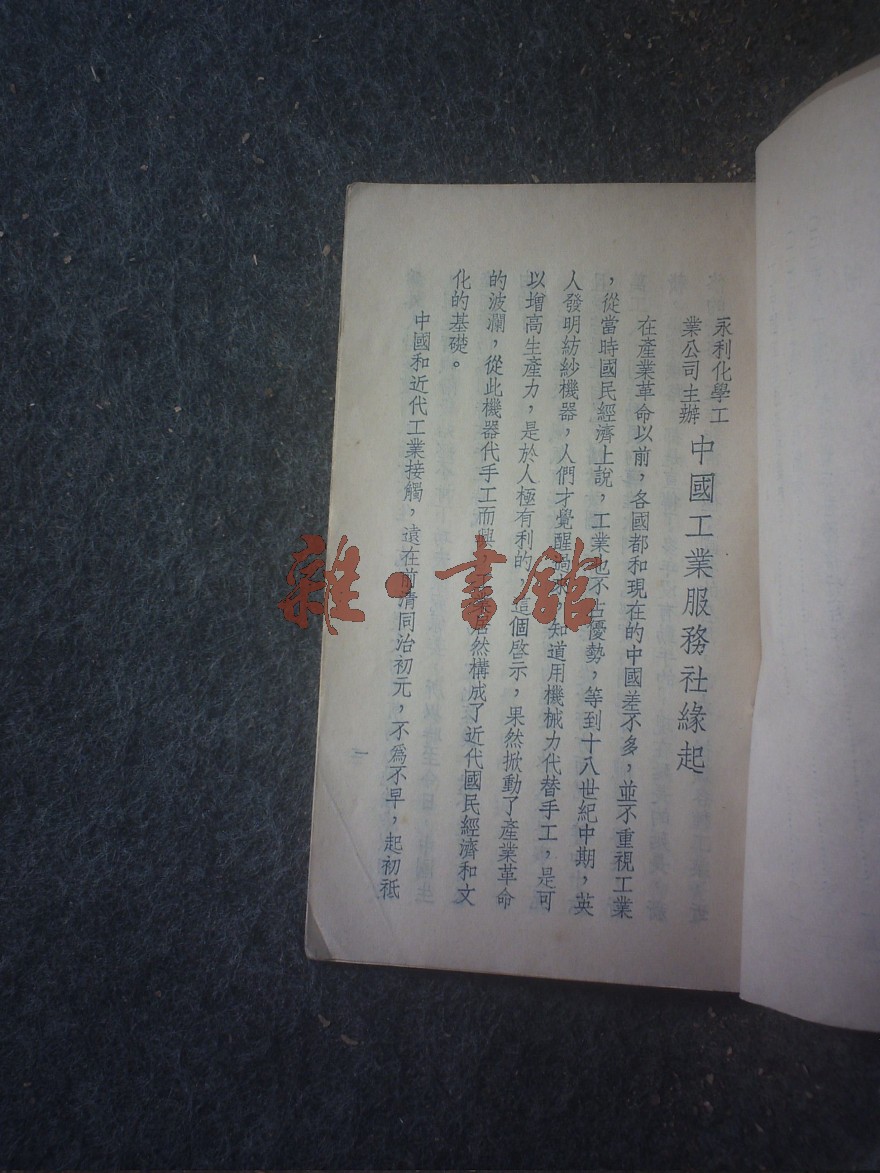 永利化學工
業公司主辦
中國工業服務社緣起
在產業革命以前，各國都和現在的中國差不多，並不重視工業
，從當時國民經濟上說，工業也不占優勢，等到十八世紀中期，英
人發明紡紗機器，人們才覺醒過來，知道用機械力代替手工，是可
以增高生產力，是於人極有利的，這個啓示，果然掀動了產業革命
的波瀾，從此機器代手工而興 居然構成了近代國民經濟和文
化的基礎。
中國和近代工業接觸，遠在前清同治初元，不爲不早，起初祗
一
雜·書館